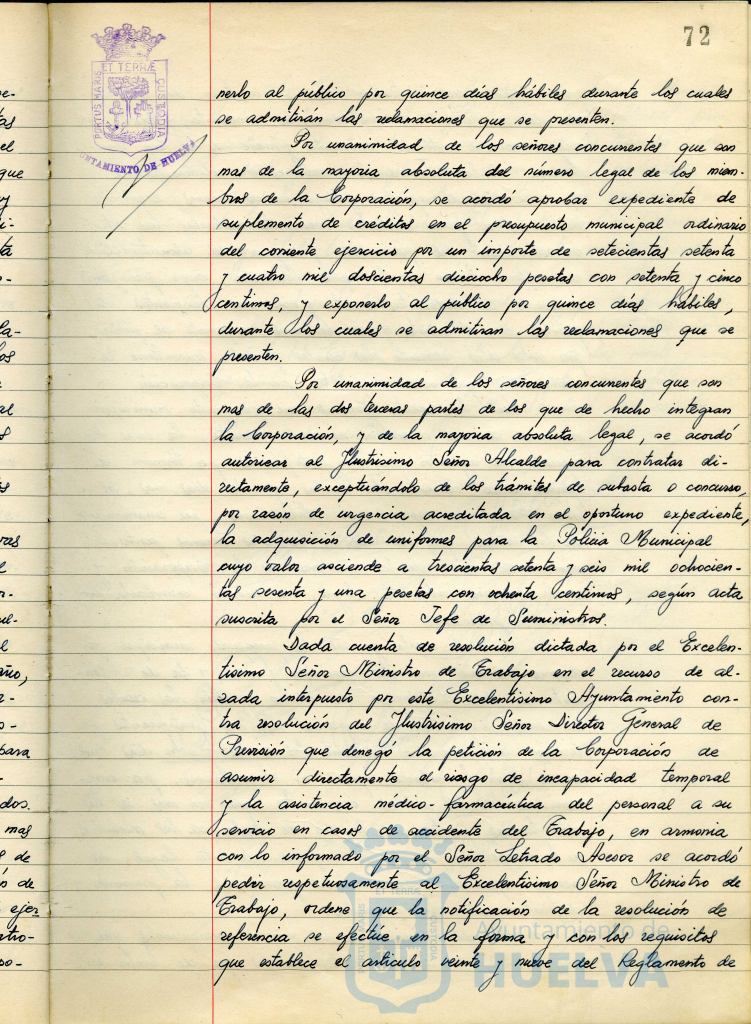 72
PORTUS MARIS
ET TERRÆ
CUSTODIA
AYUNTAMIENTO DE HUELVA
nerlo al público por quince días hábiles durante los cuales
se admitirán las reclamaciones que se presenten.
Por unanimidad de los señores concurrentes que son
mas de la mayoria absoluta del número legal de los miem-
bros de la Corporación, se acordó aprobar expediente de
suplemento de créditos en el presupuesto municipal ordinario
del corriente ejercicio por un importe de setecientas setenta
y cuatro mil doscientas dieciocho pesetas con setenta y cinco
centimos, y exponerlo al público por quince días hábiles,
durante los cuales se admitiran las reclamaciones que se
presenten.
Por unanimidad de los señores concurrentes que son
mas de las dos terceras partes de los que de hecho integran
la Corporación, y de la mayoria absoluta legal, se acordó
autorizar al Ilustrisimo Señor Alcalde para contratar di-
rectamente, exceptuándolo de los trámites de subasta o concurso,
por razón de urgencia acreditada en el oportuno expediente,
la adquisición de uniformes para la Policia Municipal
cuyo valor asciende a trescientas setenta y seis mil ochocien-
tas sesenta y una pesetas con ochenta centimos, según acta
suscrita por el Señor Jefe de Suministros.
Dada cuenta de resolución dictada por el Excelen-
tisimo Señor Ministro de Trabajo en el recurso de al-
zada interpuesto por este Excelentisimo Ayuntamiento con-
tra resolución del Ilustrisimo Señor Director General de
Previsión que denegó la petición de la Corporación de
asumir directamente el riesgo de incapacidad temporal
y la asistencia médico-farmacéutica del personal a su
servicio en casos de accidente del Trabajo, en armonia
con lo informado por el Señor Letrado Asesor se acordó
pedir respetuosamente al Excelentisimo Señor Ministro de
Trabajo, ordene que la notificación de la resolución de
referencia se efectúe en la forma y con los requisitos
que establece el articulo veinte y nueve del Reglamento de
Ayuntamiento de
HUELVA